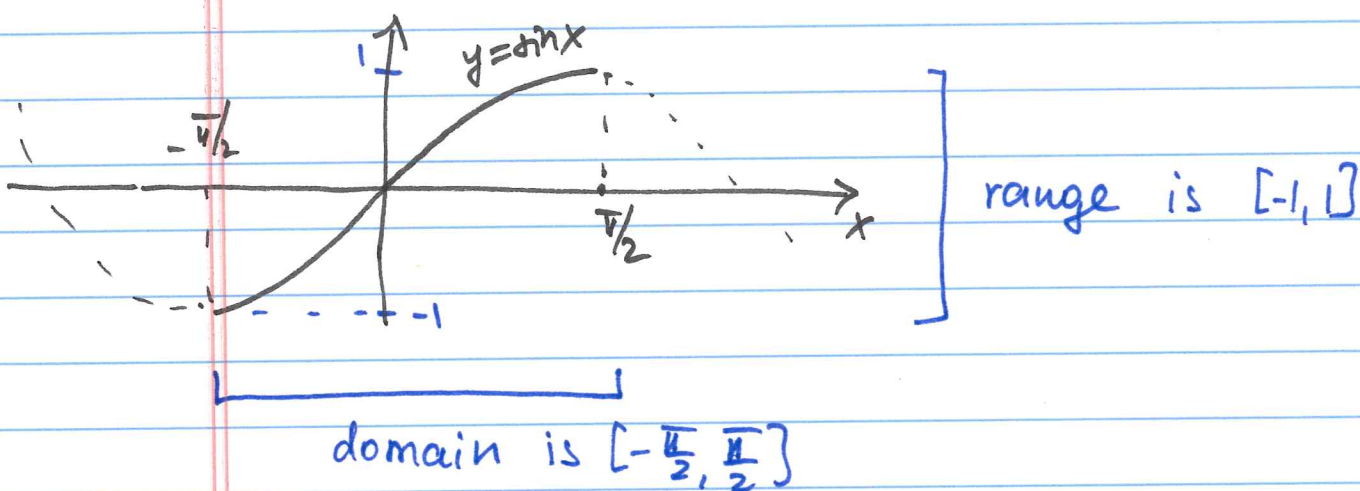 y=sinx
1
-π/2
π/2
x
range is [-1,1]
-1
domain is [-π/2, π/2]